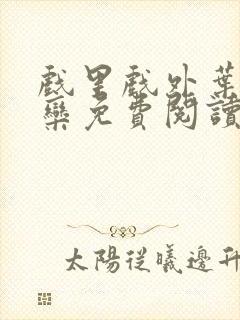 戲里戲外葉
欒免費閱讀
太陽從曦邊升